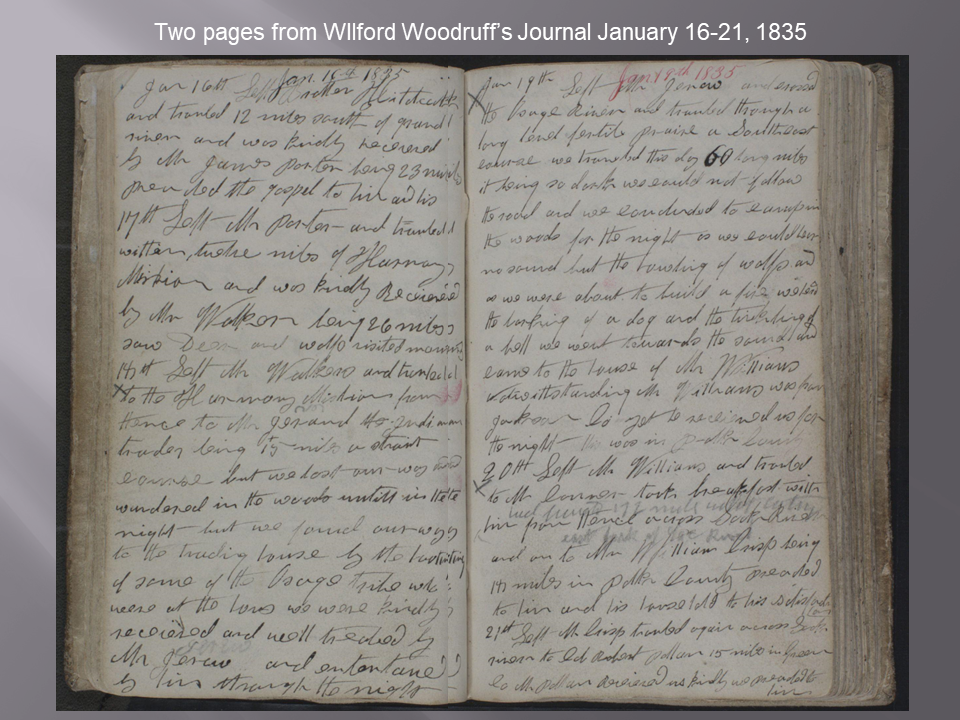 Two pages from WIlford Woodruff's Journal January 16-21, 1835
Jan. 16th 1835
Jan 16th Left Brother Hitchcock
and traveled 12 miles south of grand
river and was kindly received
by Mr James Porter being 23 miles
preached the gospel to him and his
17th Left Mr Porter and traveled
within twelve miles of Harmony
Mission and was kindly received
by Mr Walker being 26 miles
saw Deer and wolfs visited
Left Mr Walkers and traveled
to the Harmony Mission from
thence to Mr Jerew the Indian
trader being 15 miles a strait
course but we lost our way
wandered in the woods untill in the
night but we found our way
to the trading house by the
of some of the Osage tribe who
were at the house we were kindly
received and well treated by
Mr Jereu and entertaned
by him through the night
Jan 19th 1835
Jan 19th Left Mr Jereu and crossed
the Osage River and traveled through a
long bend fertile praire a Southeast
course we traveled this day 60 long miles
it being so dark we could not follow
the road and we concluded to camp in
the woods for the night as we could hear
no sound but the howling of wolfs and
as we were about to build a fire we heard
the barking of a dog and the tinkling of
a bell we went towards the sound and
came to the house of Mr Williams
notwithstanding Mr Williams was from
Jackson Co yet he received us for
the night he was in Polk County
20th Left Mr Williams and traveled
to Mr Conner took breakfast with
him from thence across
and on to Mr William Crisp being
miles in Polk County preached
to him and his household
21st Left Mr Crisp traveled again across
river to Col Robert Pollam 15 miles in
Co Mr Pollam received us kindly we preached to
him